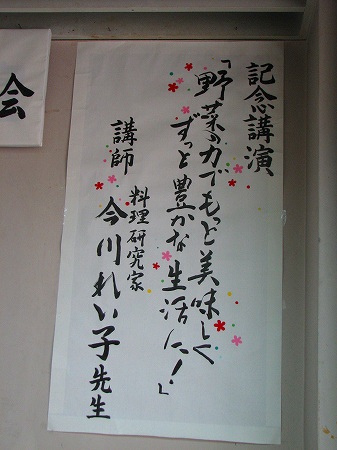 記念講演
「野菜の力でもっと美味しく
ずっと豊かな生活に！」
講師
料理研究家
今川れい子先生
会